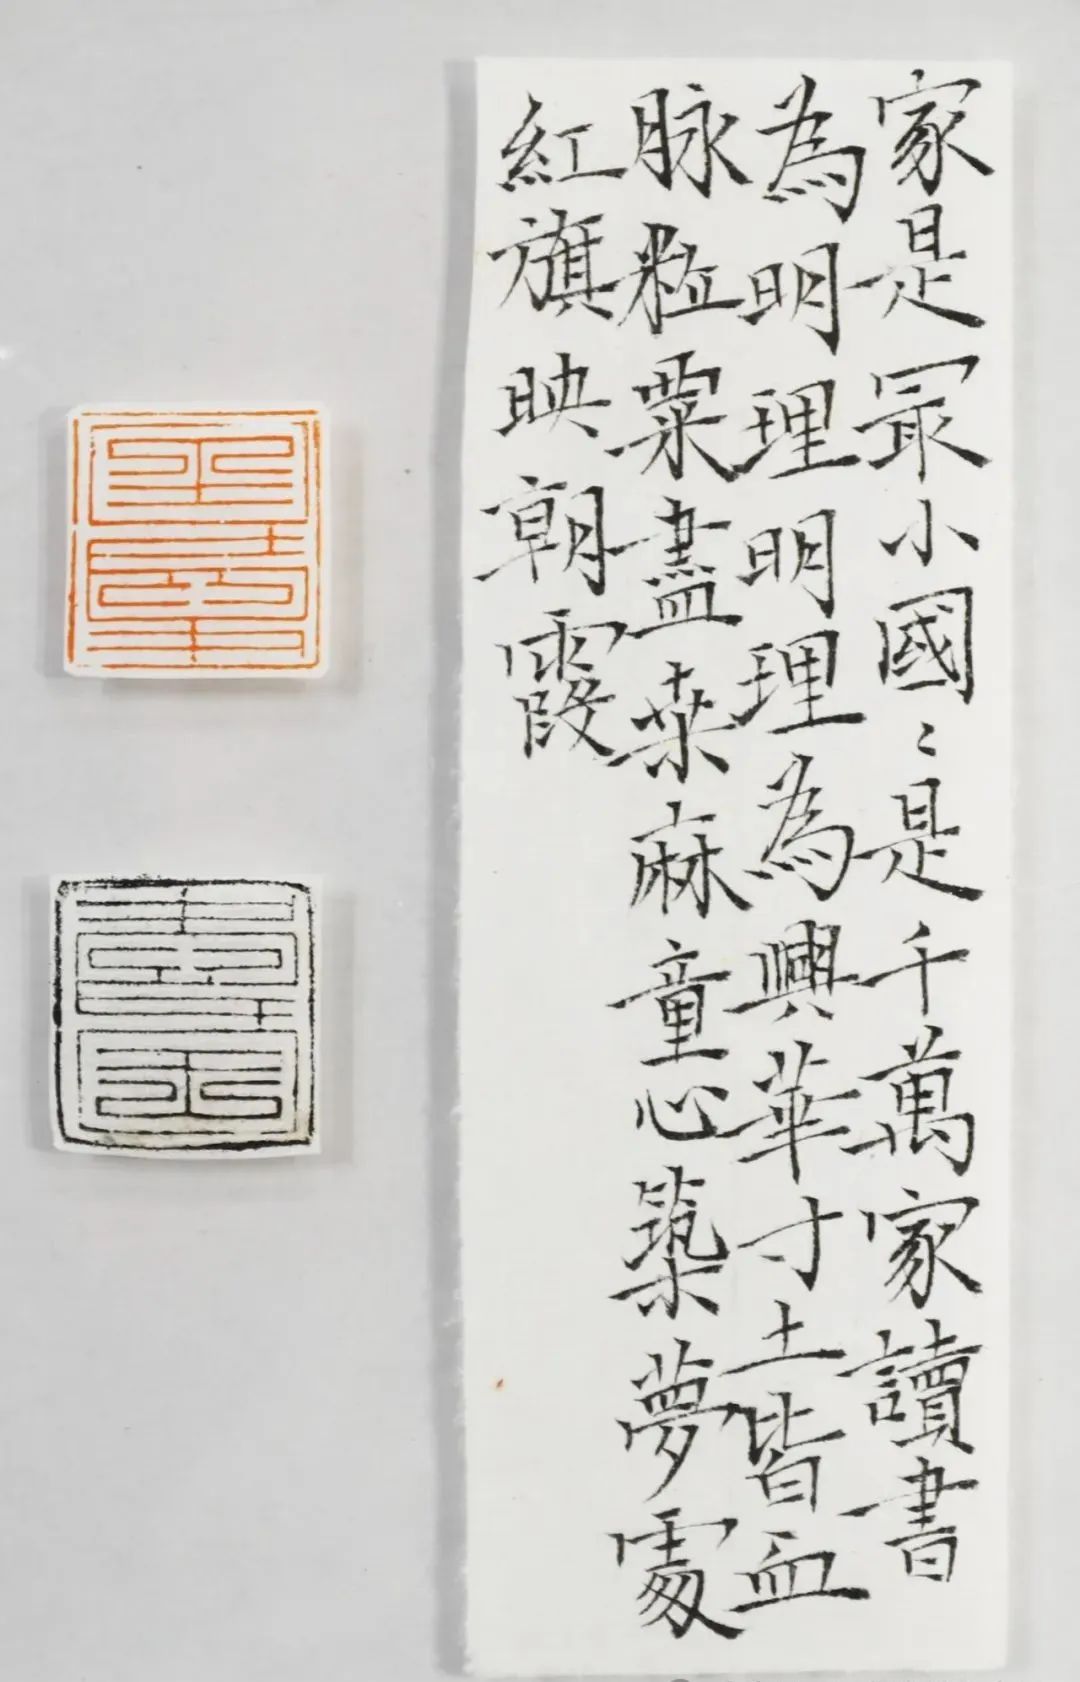 家是冣小國〻是千萬家讀書
為明理明理為興華寸土皆血
脉粒粟盡桒麻童心築夢處
紅旗映朝霞